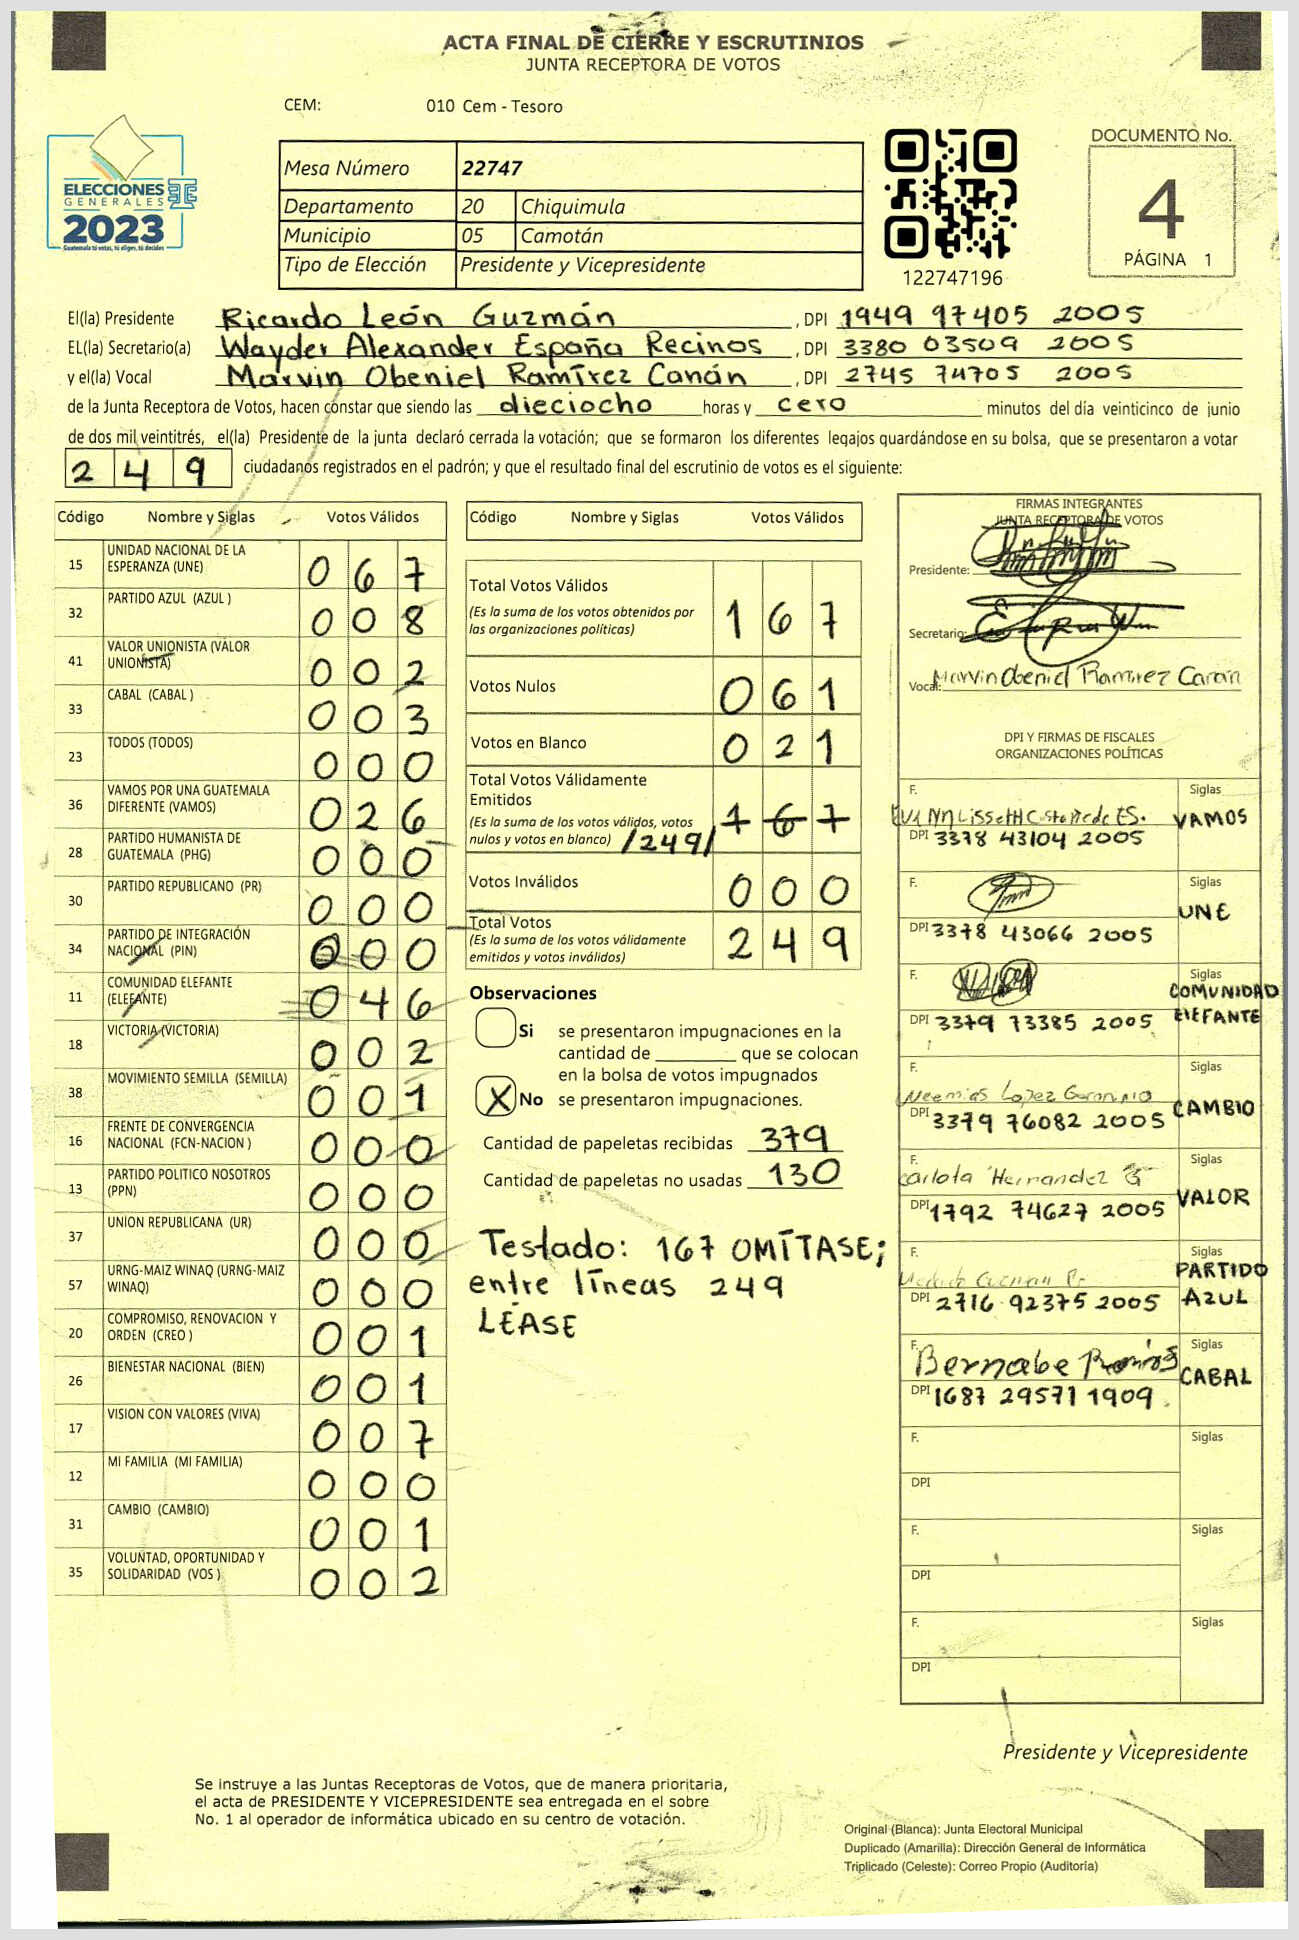 ACTA FINAL DE CIERRE Y ESCRUTINIOS
JUNTA RECEPTORA DE VOTOS
CEM: 010 Cem - Tesoro
ELECCIONES
GENERALES
2023
Guatemala tú votas, tú eliges, tú decides
Mesa Número 22747
Departamento 20 Chiquimula
Municipio 05 Camotán
Tipo de Elección Presidente y Vicepresidente
122747196
DOCUMENTO No.
4
PÁGINA 1
El(la) Presidente Ricardo León Guzmán , DPI 1949 97405 2005
EL(la) Secretario(a) Wayder Alexander España Recinos , DPI 3380 03509 2005
y el(la) Vocal Marvin Obeniel Ramírez Canán , DPI 2745 74705 2005
de la Junta Receptora de Votos, hacen constar que siendo las dieciocho horas y cero minutos del día veinticinco de junio
de dos mil veintitrés, el(la) Presidente de la junta declaró cerrada la votación; que se formaron los diferentes legajos guardándose en su bolsa, que se presentaron a votar
249 ciudadanos registrados en el padrón; y que el resultado final del escrutinio de votos es el siguiente:
Código Nombre y Siglas Votos Válidos
15 UNIDAD NACIONAL DE LA
ESPERANZA (UNE) 067
32 PARTIDO AZUL (AZUL ) 008
41 VALOR UNIONISTA (VALOR
UNIONISTA) 002
33 CABAL (CABAL ) 003
23 TODOS (TODOS) 000
36 VAMOS POR UNA GUATEMALA
DIFERENTE (VAMOS) 026
28 PARTIDO HUMANISTA DE
GUATEMALA (PHG) 000
30 PARTIDO REPUBLICANO (PR) 000
34 PARTIDO DE INTEGRACIÓN
NACIONAL (PIN) 000
11 COMUNIDAD ELEFANTE
(ELEFANTE) 046
18 VICTORIA (VICTORIA) 002
38 MOVIMIENTO SEMILLA (SEMILLA) 001
16 FRENTE DE CONVERGENCIA
NACIONAL (FCN-NACION ) 000
13 PARTIDO POLITICO NOSOTROS
(PPN) 000
37 UNION REPUBLICANA (UR) 000
57 URNG-MAIZ WINAQ (URNG-MAIZ
WINAQ) 000
20 COMPROMISO, RENOVACION Y
ORDEN (CREO ) 001
26 BIENESTAR NACIONAL (BIEN) 001
17 VISION CON VALORES (VIVA) 007
12 MI FAMILIA (MI FAMILIA) 000
31 CAMBIO (CAMBIO) 001
35 VOLUNTAD, OPORTUNIDAD Y
SOLIDARIDAD (VOS ) 002
Código Nombre y Siglas Votos Válidos
Total Votos Válidos
(Es la suma de los votos obtenidos por
las organizaciones políticas) 167
Votos Nulos 061
Votos en Blanco 021
Total Votos Válidamente
Emitidos
(Es la suma de los votos válidos, votos
nulos y votos en blanco) /249/ 167
Votos Inválidos 000
Total Votos
(Es la suma de los votos válidamente
emitidos y votos inválidos) 249
Observaciones
Si se presentaron impugnaciones en la
cantidad de ________ que se colocan
en la bolsa de votos impugnados
X No se presentaron impugnaciones.
Cantidad de papeletas recibidas 379
Cantidad de papeletas no usadas 130
Testado: 167 OMÍTASE;
entre líneas 249
LÉASE
FIRMAS INTEGRANTES
JUNTA RECEPTORA DE VOTOS
Presidente:
Secretario:
Vocal: Marvin Obeniel Ramirez Canán
DPI Y FIRMAS DE FISCALES
ORGANIZACIONES POLÍTICAS
F. Siglas
VAMOS
DPI 3378 43104 2005
F. Siglas
UNE
DPI 3378 43066 2005
F. Siglas
COMUNIDAD
ElEFANTE
DPI 3379 73385 2005
F. Siglas
Neemias Lopez
CAMBIO
DPI 3379 76082 2005
F. Siglas
Carlota Hernandez G
VALOR
DPI 1792 74627 2005
F. Siglas
PARTIDO
AZUL
DPI 2716 92375 2005
F. Siglas
Bernabe
CABAL
DPI 1687 29571 1909
F. Siglas
DPI
F. Siglas
DPI
F. Siglas
DPI
Presidente y Vicepresidente
Se instruye a las Juntas Receptoras de Votos, que de manera prioritaria,
el acta de PRESIDENTE Y VICEPRESIDENTE sea entregada en el sobre
No. 1 al operador de informática ubicado en su centro de votación.
Original (Blanca): Junta Electoral Municipal
Duplicado (Amarilla): Dirección General de Informática
Triplicado (Celeste): Correo Propio (Auditoría)